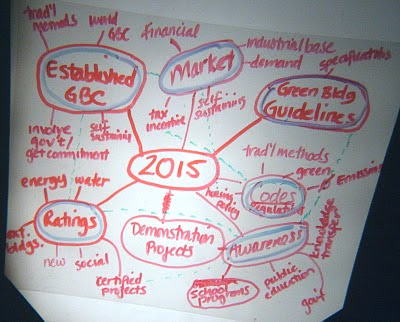 trad'l
methods
world
GBC
Established
GBC
involve
gov't/
get commitment
self
sustaining
financial
Market
industrial base
demand
tax
incentive
self
sustaining
specifications
Green Bldg
Guidelines
2015
trad'l methods
green
Emissions
Codes
regulations
housing
policy
energy
water
Ratings
ext.
bldgs.
new
social
certified
projects
Demonstration
Projects
Awareness
knowledge
transport
school
programs
public
education
gov't